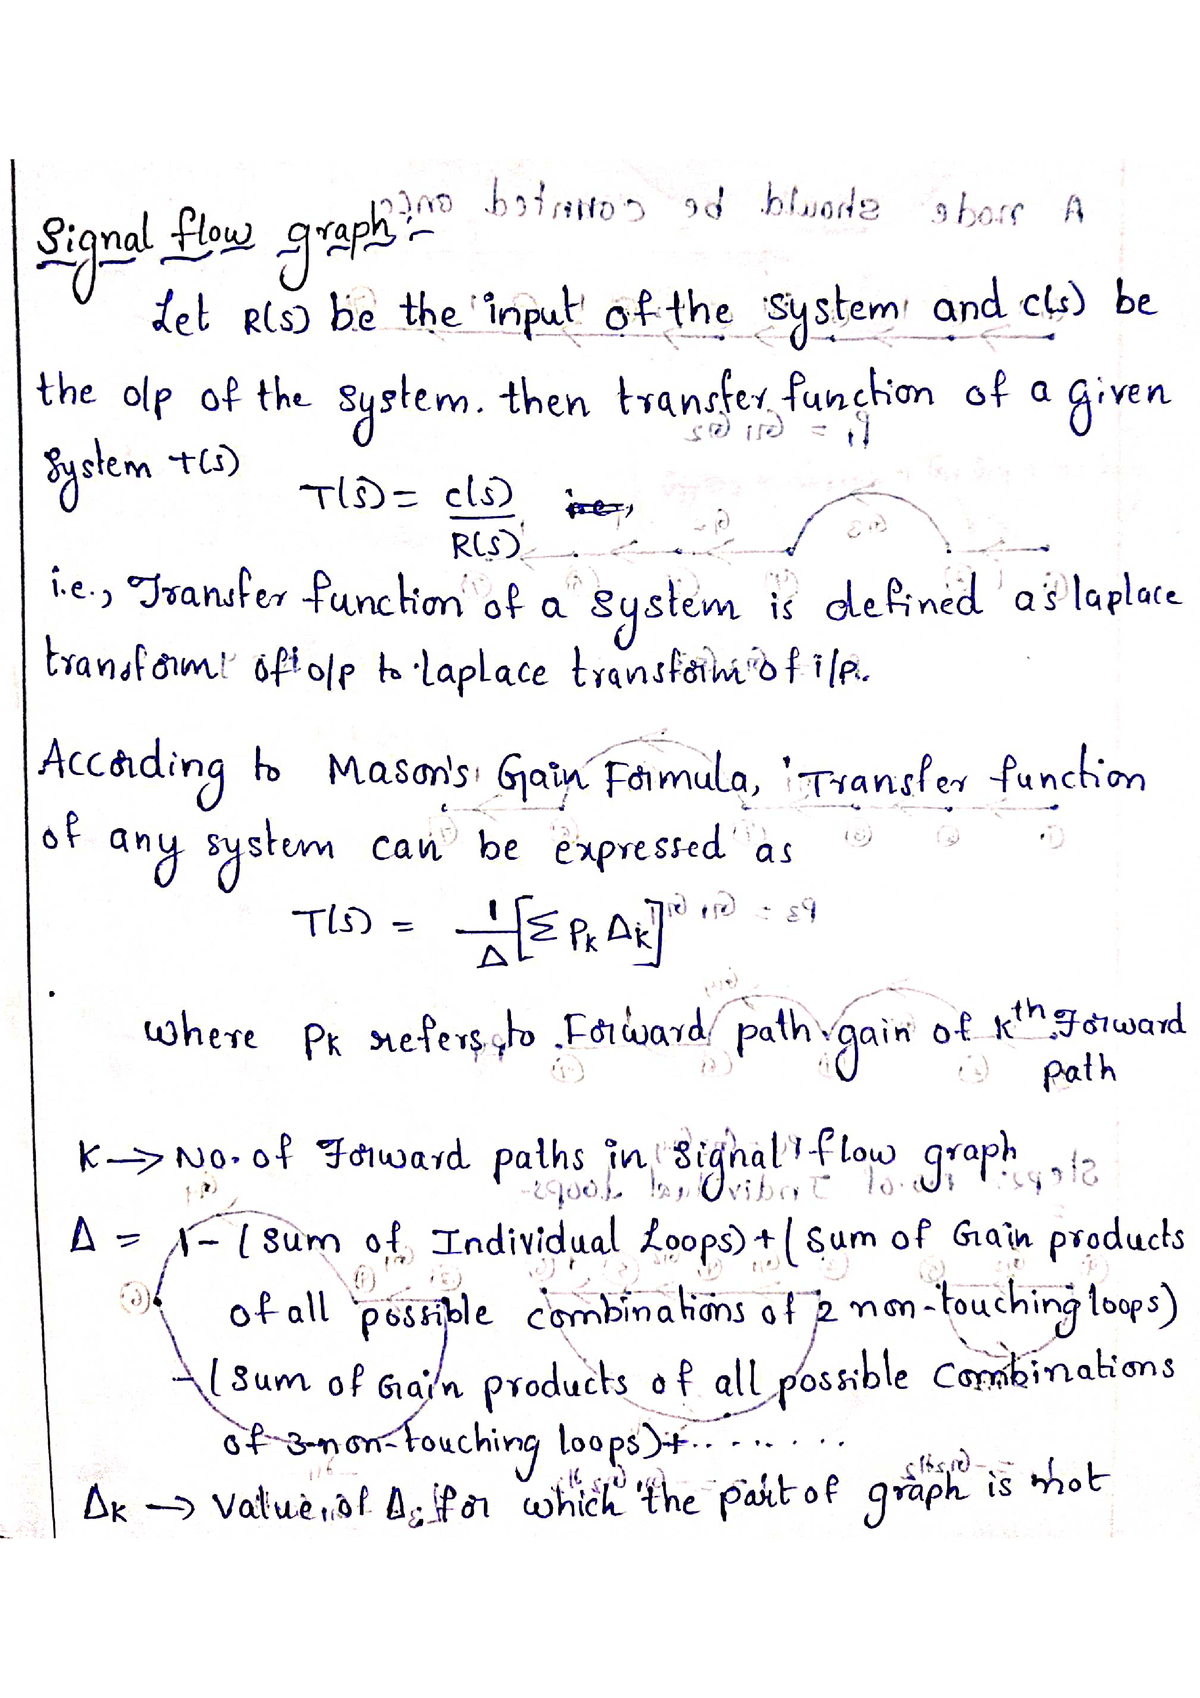 Signal flow graph:-
Let R(s) be the input of the system and c(s) be
the o/p of the system. then transfer function of a given
system T(s)
T(s) = c(s)
R(s)
i.e., Transfer function of a system is defined as laplace
transform of o/p to laplace transform of i/p.
According to Mason's Gain Formula, Transfer function
of any system can be expressed as
T(s) = 1/Δ [Σ Pk Δk]
where Pk refers to Forward path gain of kth Forward
path
K → No. of Forward paths in signal flow graph
Δ = 1 - (sum of Individual Loops) + (sum of Gain products
of all possible combinations of 2 non-touching loops)
- (sum of Gain products of all possible combinations
of 3-non-touching loops)+........
Δk → value of Δ for which the part of graph is not